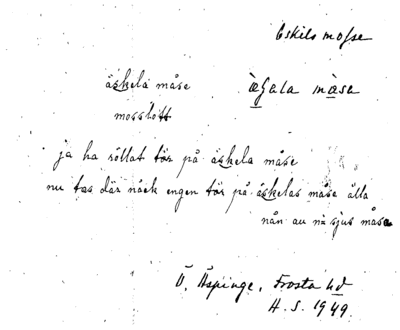 Eskils mosse
äskela måse
mosslott
ja ha röllat tör på äskela måse
nu tas där näck engen tör på äskelas måse älla
nån au n= sjus måsa
Ö. Äspinge, Frosta hd
H. S. 1949.